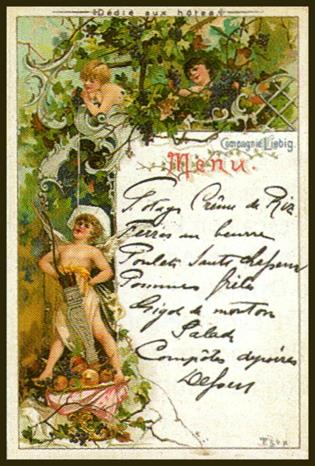 Dédié aux hôtes
Compagnie Liebig.
Menu.
Potage Crême de Riz
au beurre
Poulets Sautés
Pommes frites
Gigot de mouton
Salade
Compôtes de poires
Dessert